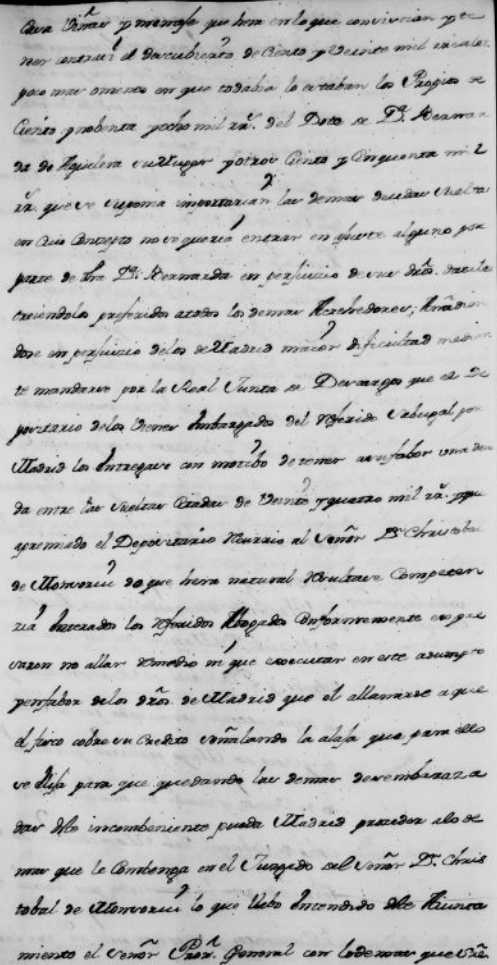 Cava Viñas y menaje que hera en lo que convinieran y te
ner contra sí el descubierto de Ciento y Veinte mil reales
pero mas omento en que todabia lo estaban los Propios de
Ciento y nobenta y ocho mil rs. del Dote de Dª. Bernar
da de Aguilera su Muger y otros Ciento y Cinquenta mil
rs. que se suponia importarian las demas deudas sueltas
en cuio Concepto no se queria entrar en ajuste alguno por
parte de dha Dª. Bernarda en perjuicio de sus dros. 
preferidos a todos los demas Acrehedores; Añadien
dose en perjuicio de los de Madrid maior dificultad median
te mandarse por la Real Junta de Descargos que el De
positario de los vienes Embargados del Referido Sabugal por
Madrid los Entregase con motibo de tener a su fabor una deu
da entre las sueltas Citadas de Veinte y quatro mil rs. y que
apremiado el Depositario Recurrio al Señor Dn. Christobal
de Monsoriu de que hera natural Resultase Competen
zia Enterados los Referidos Abogados Conformemente expre
saron no allar Remedio ni que executar en este asumpto
en fabor de los dros. de Madrid que el allanarse a que
el fisco cobre su Credito señalando la alaja que para ello
se Elija para que quedando las demas desembaraza
das deste incombeniente pueda Madrid proceder a lo de
mas que le Combenga en el Juzgado del Señor Dn. Chris
tobal de Monsoriu lo que Visto Entendido deste Aiunta
miento el Señor Pror. General con lo demas que